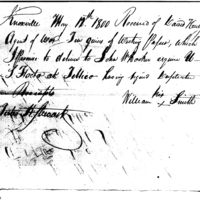 Knoxville May 12th 1800 Received of David Henley
Agent of War Ten quires of Writing Paper, which
I promise to deliver to John W Hooker esquire U
S Factor at Tellico having signed Duplicate
Receipts
William his x Smith